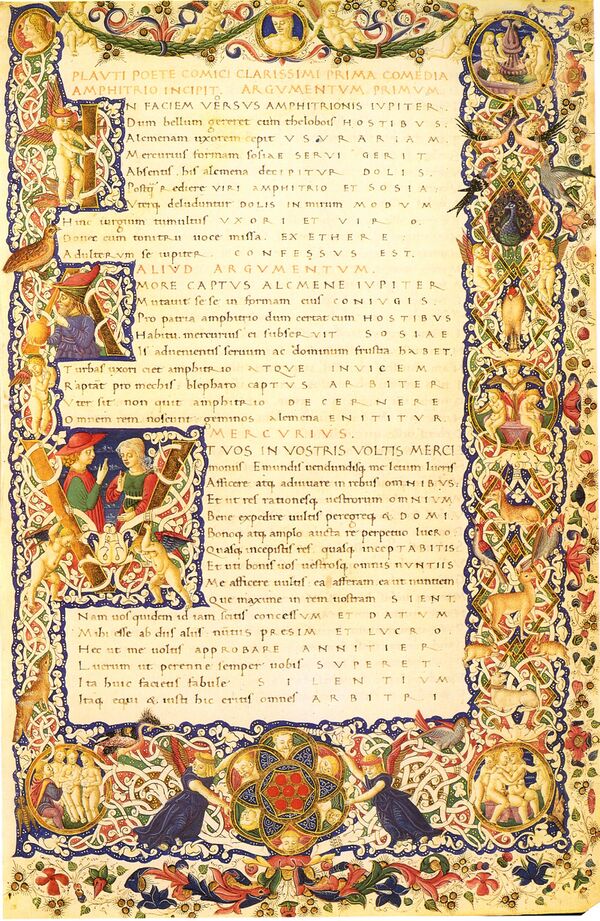 PLAVTI POETE COMICI CLARISSIMI PRIMA COMEDIA
AMPHITRIO INCIPIT. ARGVMENTVM PRIMVM
IN FACIEM VERSVS AMPHITRIONIS IVPITER.
Dum bellum gereret cum thelobois HOSTIBVS.
Alcmenam uxorem cepit VSVRARIAM.
Mercurius formam sosiae SERVI GERIT.
Absentis. his alcmena deciPITVR DOLIS.
Postq rediere VIRI AMPHITRIO ET SOSIA.
Vterq deluduntur DOLIS IN mirum MODVM
Hinc iurgium tumultus VXORI ET VIRO.
Donec cum tonitru uoce missa. EX ETHERE.
Adulterum se iupiter. CONFESSVS EST.
ALIVD ARGVMENTVM.
AMORE CAPTVS ALCMENE IVPITER
Mutauit sese in formam eius CONIVGIS.
Pro patria amphitrio dum certat cum HOSTIBVS
Habitu. mercurius ei subseruit SOSIAE
Is aduenientis seruum ac dominum frustra haBET.
Turbas uxori ciet amphitrio ATQVE INVICEM
Raptat pro mechis. blepharo capTVS ARBITER
Vter sit non quit amphitrio DECERNERE
Omnem rem noscunt geminos alcmena ENITITVR.
MERCVRIVS.
VT VOS IN VOSTRIS VOLTIS MERCI
monius Emundis uendundisq me letum lucris
Afficere atq adiuuare in rebus omNIBVS.
Et ut res rationesq uestrorum omNIVM
Bene expedire uultis peregreq & DOMI.
Bonoq atq amplo aucta re perpetuo lucro.
Quasq incepistis res. quasq incepTABITIS
Et uti bonis uos uestrosq omnis NVNTIIS
Me afficere uultis ea afferam ea ut nuntiem
Que maxime in rem uostram SIENT.
Nam uos quidem id iam scitis concessVM ET DATVM
Mihi esse ab diis aliis nutiis PRESIM ET LVCRO.
Hec ut me uoltis apPROBARE ANNITIER
Lucrum ut perenne semper uobis SVPERET.
Ita huic facietis fabule SILENTIVM
Itaq equi & iusti hic eritis omnes ARBITRI